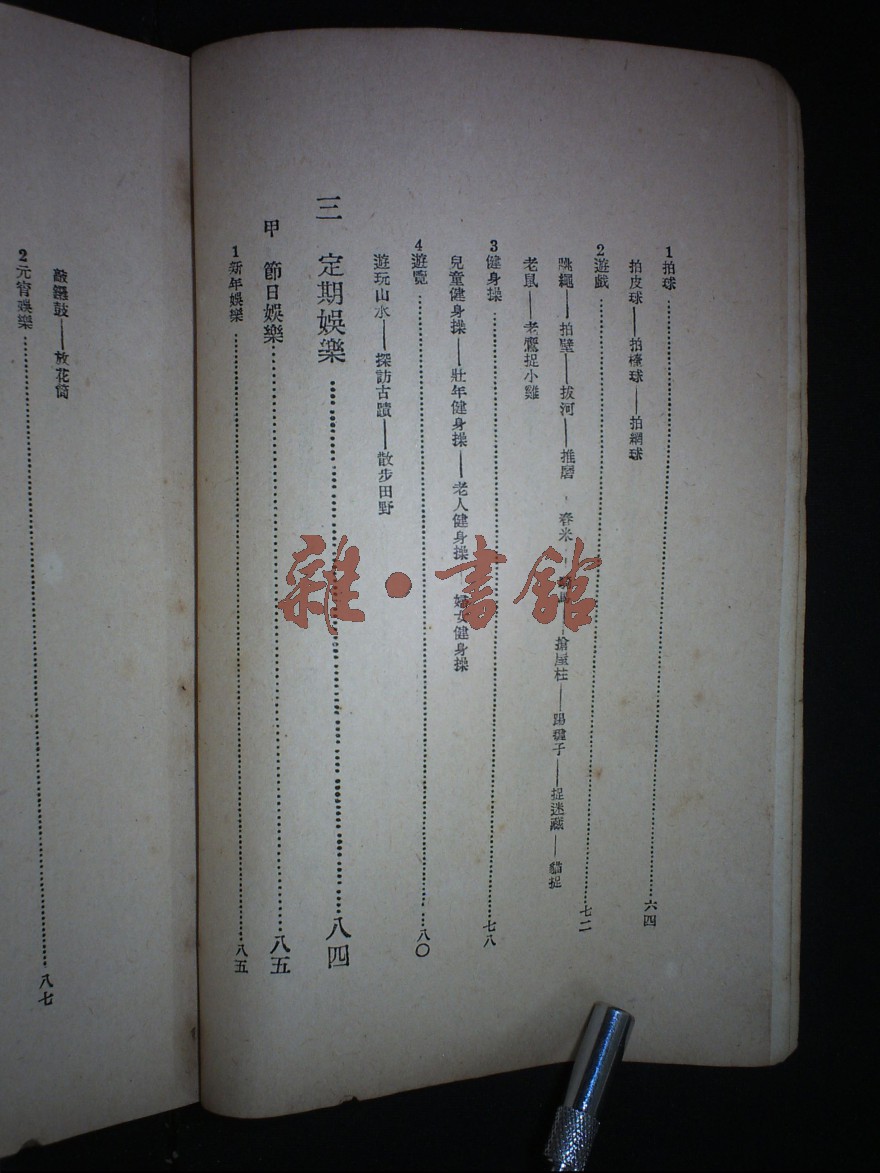 1拍球……六四
拍皮球——拍檯球——拍網球
2遊戲……七二
跳繩——拍壁——拔河——推磨——舂米——搶屋柱——踢毽子——捉迷藏——貓捉
老鼠——老鷹捉小雞
3健身操……七八
兒童健身操——壯年健身操——老人健身操——婦女健身操
4遊覽……八〇
遊玩山水——探訪古蹟——散步田野
三 定期娛樂……八四
甲 節日娛樂……八五
1新年娛樂……八五
敲鑼鼓——放花筒
2元宵娛樂……八七
雜·書館